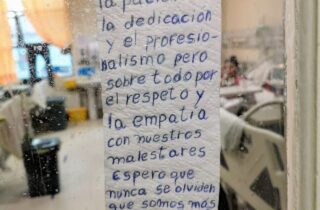 la dedicación
y el profesio-
nalismo pero
sobre todo por
el respeto y
la empatia
con nuestros
malestares
espero que
nunca se olviden
que somos más